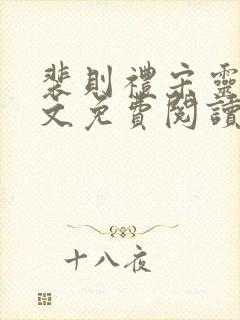 裴則禮宋靈
文免費閱讀
十八夜